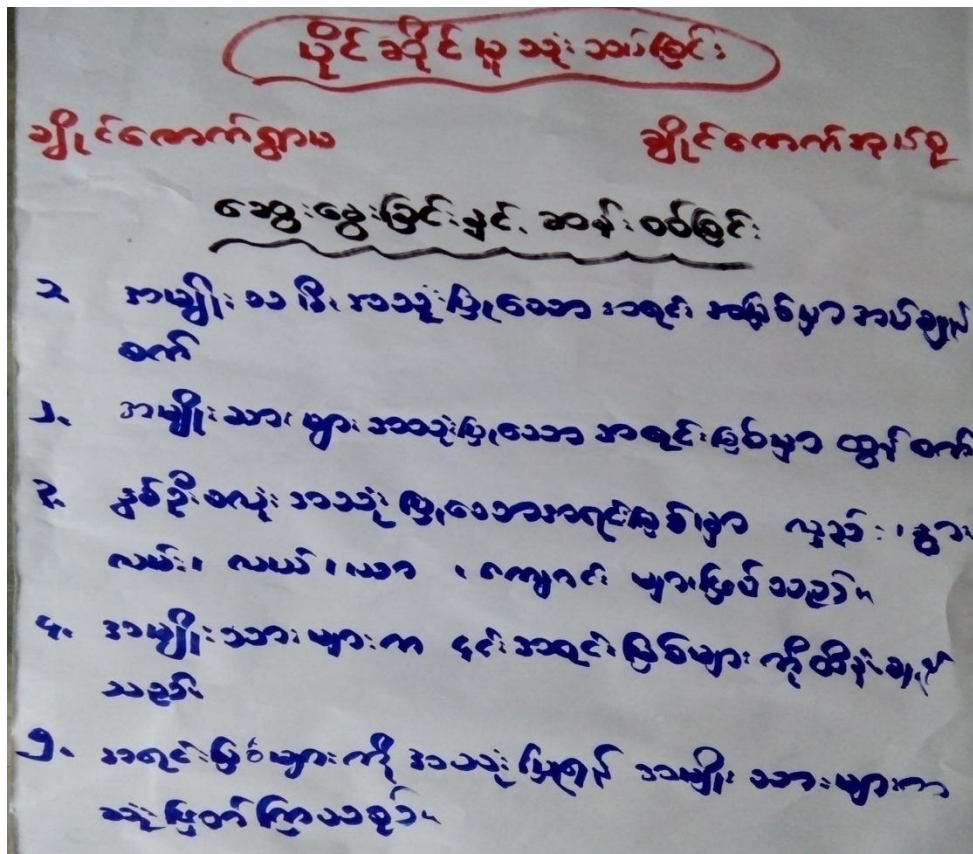 ပိုင်ဆိုင်မှု သုံးသပ်ခြင်း
ချိုင်ကောက်ရွာမ ချိုင်ကောက်အုပ်စု
ဆွေးနွေးခြင်းနှင့် ဆန်းစစ်ခြင်း
အမျိုးသမီး အသုံးပြုသော အရင်းအမြစ်မှာ အပ်ချုပ်
စက်
၂. အမျိုးသားများ အသုံးပြုသော အရင်းမြစ်မှာ ထွန်စက်
၃. နှစ်ဦးစလုံး အသုံးပြုသောအရင်းမြစ်မှာ လှည်း၊ နွား
လမ်း၊ လယ်၊ ယာ၊ ကျောင်း များဖြစ်သည်။
၄. အမျိုးသားများက ၎င်းအရင်းမြစ်များကို ထိန်းချုပ်
သည်။
၅. အရင်းမြစ်များကို အသုံးပြုရန် အမျိုးသားများက
ဆုံးဖြတ်ကြသည်။